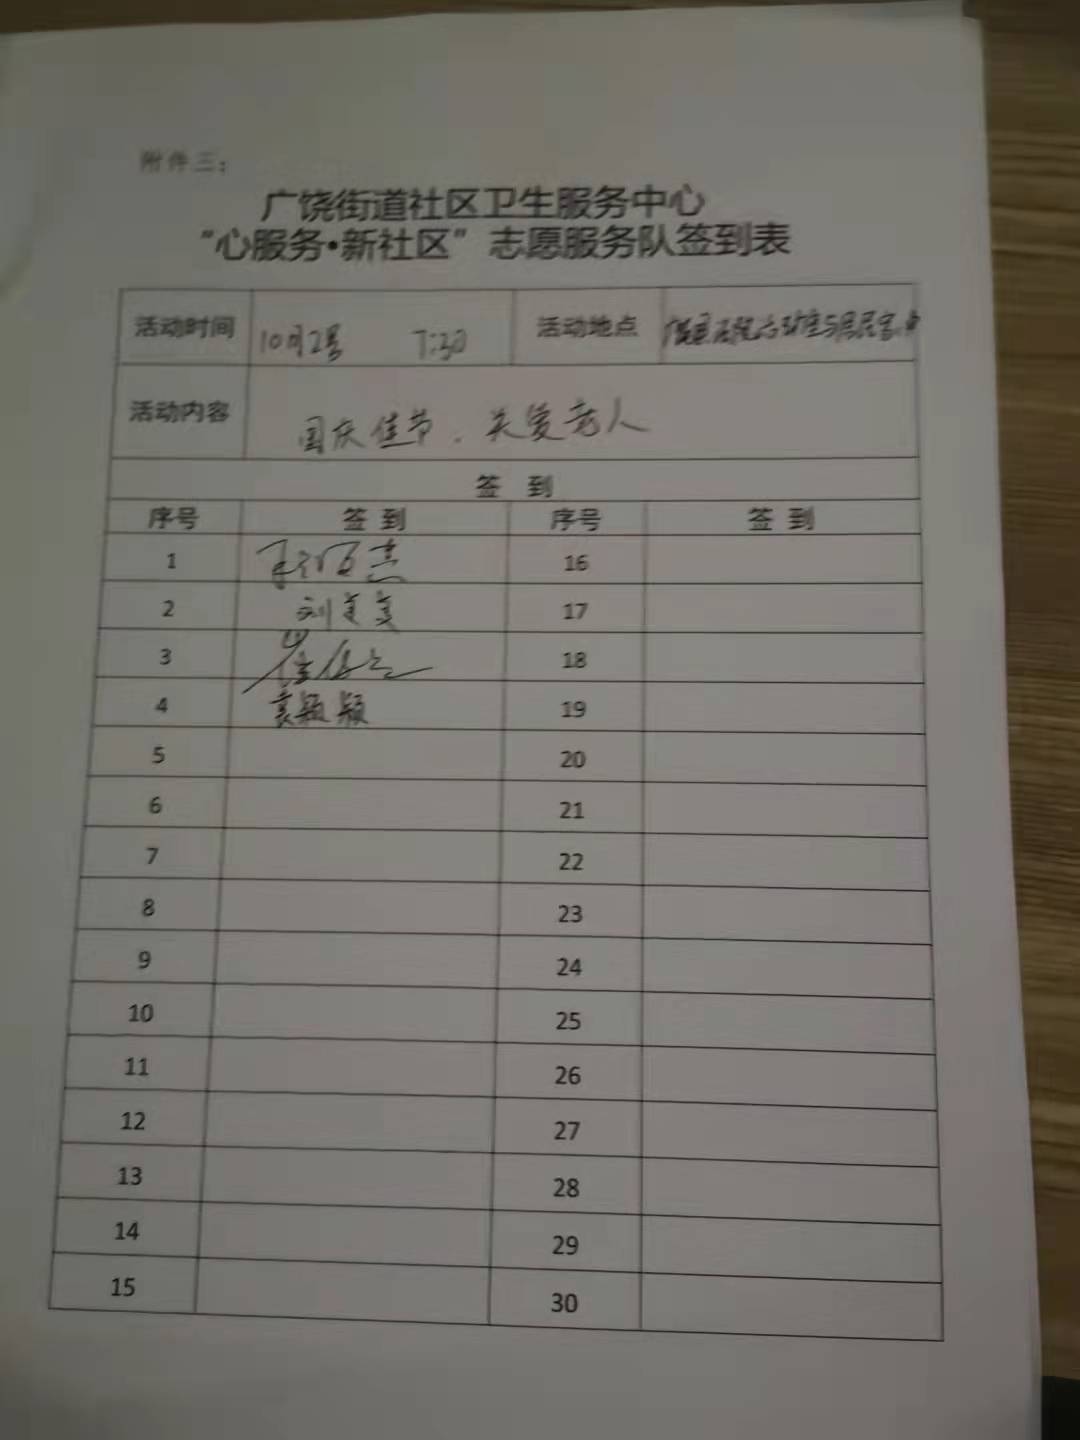 附件三:
广饶街道社区卫生服务中心
“心服务•新社区”志愿服务队签到表
活动时间 10月2号 7:30 活动地点
活动内容 国庆佳节.关爱老人
签 到
序号 签到 序号 签到
1 16
2 刘美美 17
3 18
4 袁颖颖 19
5 20
6 21
7 22
8 23
9 24
10 25
11 26
12 27
13 28
14 29
15 30